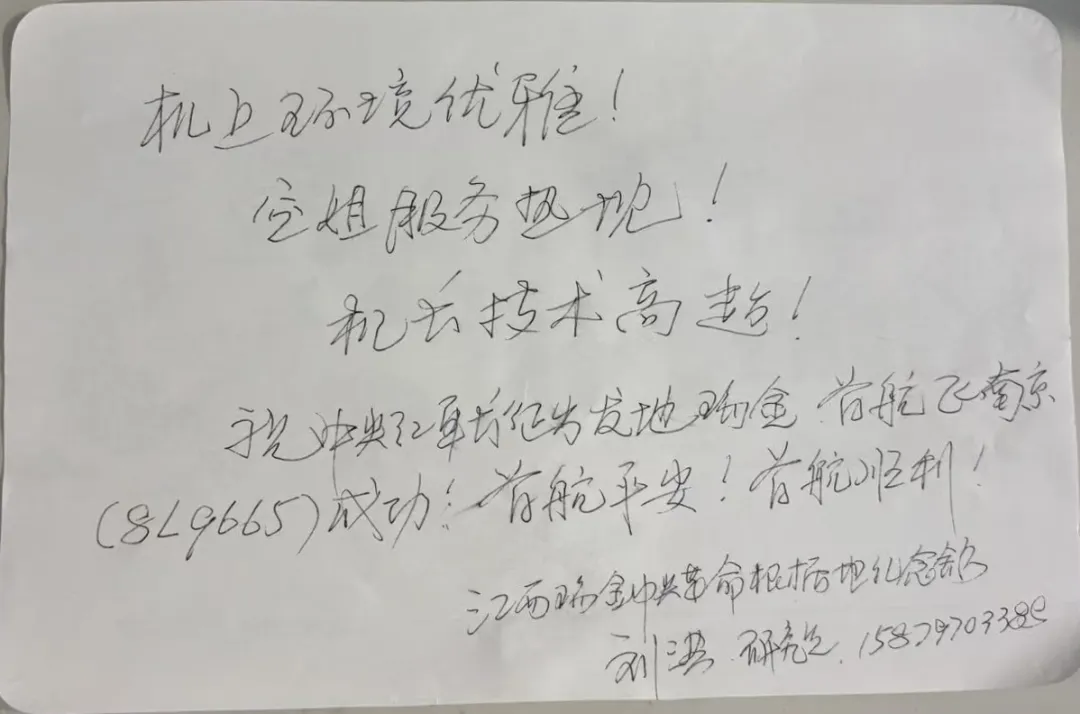 机上环境优雅！
空姐服务热忱！
机长技术高超！
祝中央红军长征出发地瑞金首航飞南京
(8L9665)成功！首航平安！首航顺利！
江西瑞金中央革命根据地纪念馆
刘 研究员.